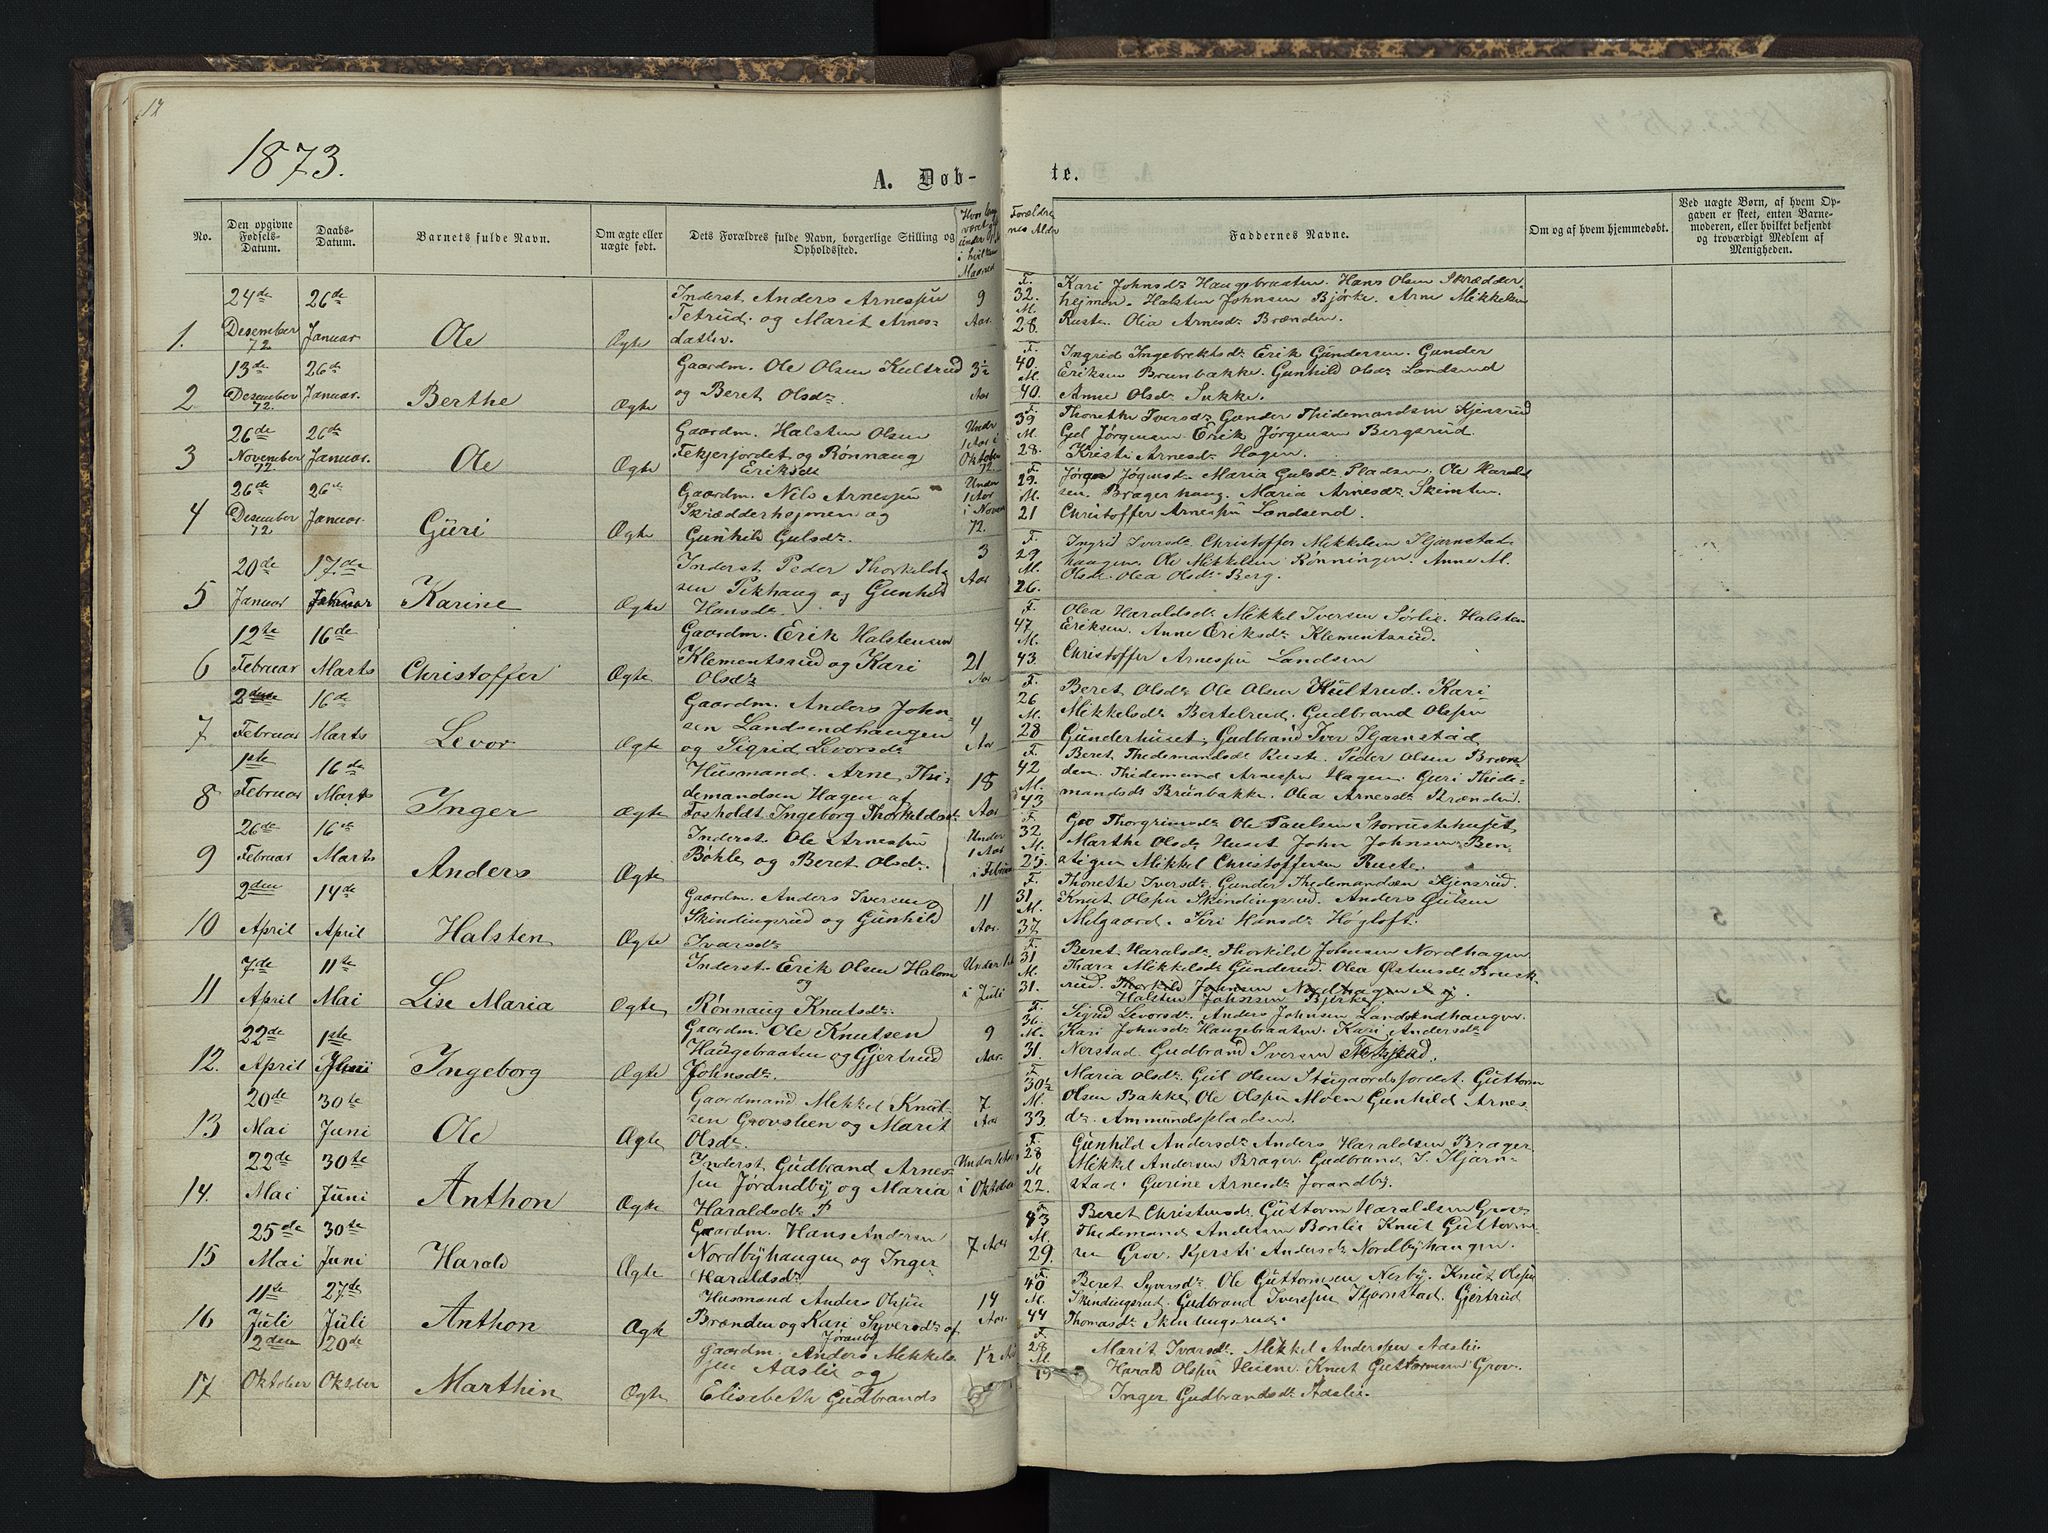 12
1873.
A. Døb-
te.
No.
Den opgivne Fødsels-Datum.
Daabs-Datum.
Barnets fulde Navn.
Om ægte eller uægte født.
Dets Forældres fulde Navn, borgerlige Stilling og Opholdssted.
Forældrenes Alder
Faddernes Navne.
Om og af hvem hjemmedøbt.
Ved uægte Børn, af hvem Opgaven er skeet, enten Barnemoderen, eller hvilket bekjendt og troværdigt Medlem af Menigheden.
1. 24de Desember 72. 26de Januar Ole Ægte
Inderst. Anders Arnesøn
Tetrud og Marit Arnes-
datter.
9 Aar
F. 32. M. 28.
Kari Johnsdr Haugebraaten. Hans Olsen Skrædder-
hejmen. Halsten Johnsen Bjørke. Arne Mikkelsen
Ruste. Olia Arnesdr Brænden.
2 13de Desember 72. 26de Januar. Berthe Ægte
Gaardm. Ole Olsen Kultrud
og Beret Olsdr.
3½ Aar
F. 40. M. 40.
Ingrid Ingebrektsdr Erik Gundersen. Gunder
Eriksen Brunbakke. Gunhild Olsdr Landsend
Anne Olsdr Sukke.
3 26de November 72 26de Januar. Ole Ægte
Gaardm. Halsten Olsen
Tekjerjordet og Rønnaug
Eriksdr
Under 1 Aar i Oktober 72.
F. 39 M. 28.
Thorethe Iversdr Gunder Thidemandsen Kjensrud
Gul Jørgensen. Erik Jørgensen Bergsrud.
Kristi Arnesdr Hagen.
4 26de Desember 72 26de Januar. Guri Ægte
Gaardm. Nils Arnesøn
Skrædderhejmen og
Gunhild Gulsdr.
Under 1 Aar i Novem 72.
F. 29. M. 21
Maria Gulsdr Pladsen. Ole Harald-
sen. Bragerhaug. Maria Arnesdr Skimten.
Christoffer Arnesøn Landsend.
5 20de Januar 17.de Karine Ægte
Inderst Peder Thorkild-
sen Pikhaug og Gunhild
Hansdr.
3 Aar
F. 29 M. 26.
Ingrid Iversdr. Christoffer Mikkelsen Hjarnstad-
haugen. Ole Mikkelsen Rønningen. Anne M.
Olsdr. Olea Olsdr Berg.
6 12te Februar 16de Marts Christoffer Ægte
Gaardm. Erik Halstensen
Klementsrud og Kari
Olsdr
21 Aar
F. 47 M. 43.
Olea Haraldsdr Mikkel Iversen Sørlie. Halsten
Eriksen. Anne Eriksdr Klementsrud.
Christoffer Arnesøn Landsen
7 2den Februar 16de Marts Levor Ægte
Gaardm. Anders John-
sen Landsendhaugen
og Sigrid Levorsdr
4 Aar
F. 26 M. 28
Beret Olsdr Ole Olsen Hultrud. Kari
Mikkelsdr Bertelrud. Gudbrand Olsøn
Gunderhuset. Gudbrand Iver Hjarnstad
8 1ste Februar 16de Marts Inger Ægte
Husmand. Arne Thi-
demandsen Hagen af
Fosholdt. Ingeborg Thorkeldsdr
18 Aar
F. 42 M. 43
Beret Thedemandsdr Ruste. Peder Olsen Bræn-
den. Thidemand Arnesøn Hagen. Guri Thide-
mandsdr Brunbakke. Olea Arnesdr Brænden.
9 26de Februar 16de Marts Anders Ægte
Inderst. Ole Arnesøn
Bøhle og Beret Olsdr.
Under 1 Aar i Februar
F. 32 M. 25.
Gro Thorgrimsdr Ole Paulsen Storrustehuset
Marthe Olsdr Huset John Johnsen Ben-
Mikkel Christoffersen Ruste.
10 2den April 14de April Halsten Ægte
Gaardm. Anders Iversen
Skindingsrud og Gunhild
Ivarsdr
11 Aar.
F. 31 M. 37
Thorette Iversdr. Gunder Thedemandsen Kjensrud.
Knut Olsøn Skindingsrud. Anders Gulsen
Melgaard. Siri Hansdr Høgloft.
5
11 7de April 11te Mai Lise Maria Ægte
Inderst. Erik Olsen Halom
og
Rønnaug Knutsdr.
Under 1 Aar i Juli
F. 31 M. 31.
Beret Haralsdr. Thorkild Johnsen Nordhagen
Thora Mikkelsdr Gunderud. Olea Østensdr Brusk-
rud. Thorkild Johnsen Nordhagen
Halsten Johnsen Bjerke
5
12. 22de April 1ste Juni Ingeborg Ægte
Gaardm. Ole Knutsen
Haugebraaten og Gjertrud
Johnsdr.
9 Aar.
F. 36 M. 31.
Sigrid Levorsdr. Anders Johnsen Landsendhaugen.
Kari Johnsdr Haugebraaten. Kari Andersdr
Nerstad. Gudbrand Iversen
13 20de Mai 30te Juni Ole Ægte
Gaardmand Mikkel Knut-
sen Grovslien og Marit
Olsdr.
7 Aar
F. 30½ M. 33.
Maria Olsdr. Gul Olsen Stugaardsjordet. Guttorm
Olsen Bakke, Ole Olsøn Moen Gunhild Arnes-
dr. Ammundspladsen.
14. 22de Mai 30te Juni Anthon Ægte
Inderst Gudbrand Arne-
søn Jørandby og Maria
Haraldsdr
Under 1 Aar i Oktober
F. 28 M 22.
Gunhild Andersdr Anders Haraldsen Brager
Mikkel Andersen Brager. Gudbrand I. Hjarn-
stad. Gurine Arnesdr Jorandby.
15 25de Mai 30te Juni Harald Ægte
Gaardm. Hans Andersen
Nordbyhaugen og Inger
Haraldsdr
7 Aar
F. 43 M. 29.
Beret Christensdr Guttorm Haraldsen Grov
Thedemand Andersen Bonlie Knut Guttorm-
sen Grov. Kjersti Andersdr Nordbyhaugen.
16 11te Juli 27de Juli Anthon Ægte
Husmand Anders Olsøn
Brænden og Kari Syversdr af
Joranby
14 Aar.
F. 40 M. 44
Beret Syversdr Ole Guttormsen Nesby. Knut Olsøn
Skindingsrud. Gudbrand Iversøn Hjarnstad. Gjertrud
Thomasdr Skindingsrud.
17 2den Oktober 20de Oktober Marthin Ægte
Gaardm. Anders Mikkel-
søn Aaslie og
Elisebeth Gudbrands
1½ Aar
F. 28. M. 19
Marit Ivarsdr. Mikkel Andersøn Aaslie.
Harald Olsøn Heisne. Knut Guttormsen Grov.
Inger Gudbrandsdr Aaslie.